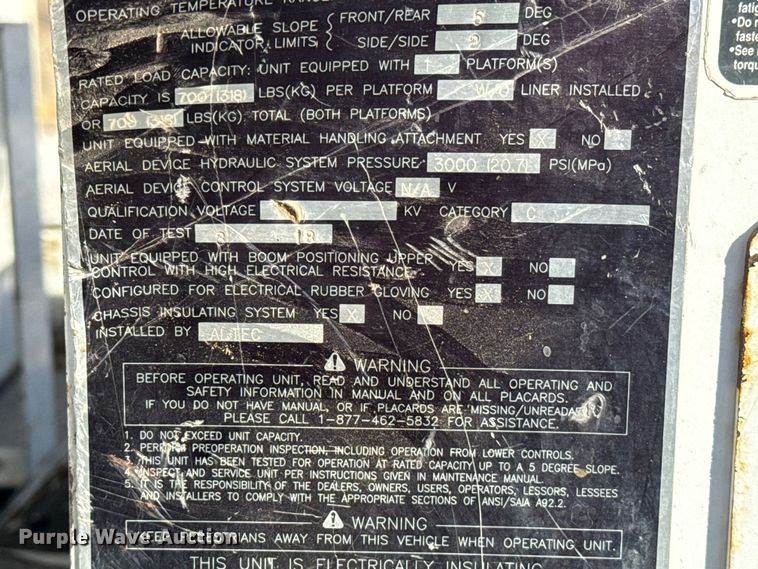 OPERATING TEMPERATURE
ALLOWABLE SLOPE INDICATOR LIMITS { FRONT/REAR 5 DEG
SIDE/SIDE DEG
RATED LOAD CAPACITY: UNIT EQUIPPED WITH 1 PLATFORM(S)
CAPACITY IS 700 (318) LBS(KG) PER PLATFORM W/O LINER INSTALLED
OR (318) LBS(KG) TOTAL (BOTH PLATFORMS)
UNIT EQUIPPED WITH MATERIAL HANDLING ATTACHMENT YES X NO
AERIAL DEVICE HYDRAULIC SYSTEM PRESSURE 3000 (20.7) PSI(MPa)
AERIAL DEVICE CONTROL SYSTEM VOLTAGE N/A V
QUALIFICATION VOLTAGE KV CATEGORY C
DATE OF TEST 18
UNIT EQUIPPED WITH BOOM POSITIONING UPPER
CONTROL WITH HIGH ELECTRICAL RESISTANCE YES X NO
CONFIGURED FOR ELECTRICAL RUBBER GLOVING YES X NO
CHASSIS INSULATING SYSTEM YES X NO
INSTALLED BY ALTEC
WARNING
BEFORE OPERATING UNIT, READ AND UNDERSTAND ALL OPERATING AND
SAFETY INFORMATION IN MANUAL AND ON ALL PLACARDS.
IF YOU DO NOT HAVE MANUAL, OR IF PLACARDS ARE MISSING/UNREADABLE
PLEASE CALL 1-877-462-5832 FOR ASSISTANCE.
1. DO NOT EXCEED UNIT CAPACITY.
2. PERFORM PREOPERATION INSPECTION, INCLUDING OPERATION FROM LOWER CONTROLS.
3. THIS UNIT HAS BEEN TESTED FOR OPERATION AT RATED CAPACITY UP TO A 5 DEGREE SLOPE.
4. INSPECT AND SERVICE UNIT PER INSTRUCTIONS GIVEN IN MAINTENANCE MANUAL.
5. IT IS THE RESPONSIBILITY OF THE DEALERS, OWNERS, USERS, OPERATORS, LESSORS, LESSEES
AND INSTALLERS TO COMPLY WITH THE APPROPRIATE SECTIONS OF ANSI/SAIA A92.2.
WARNING
KEEP PEDESTRIANS AWAY FROM THIS VEHICLE WHEN OPERATING UNIT.
THIS UNIT IS ELECTRICALLY INSULATING
fatig
•Do n
faste
•See
torqu
Purple Wave Auction